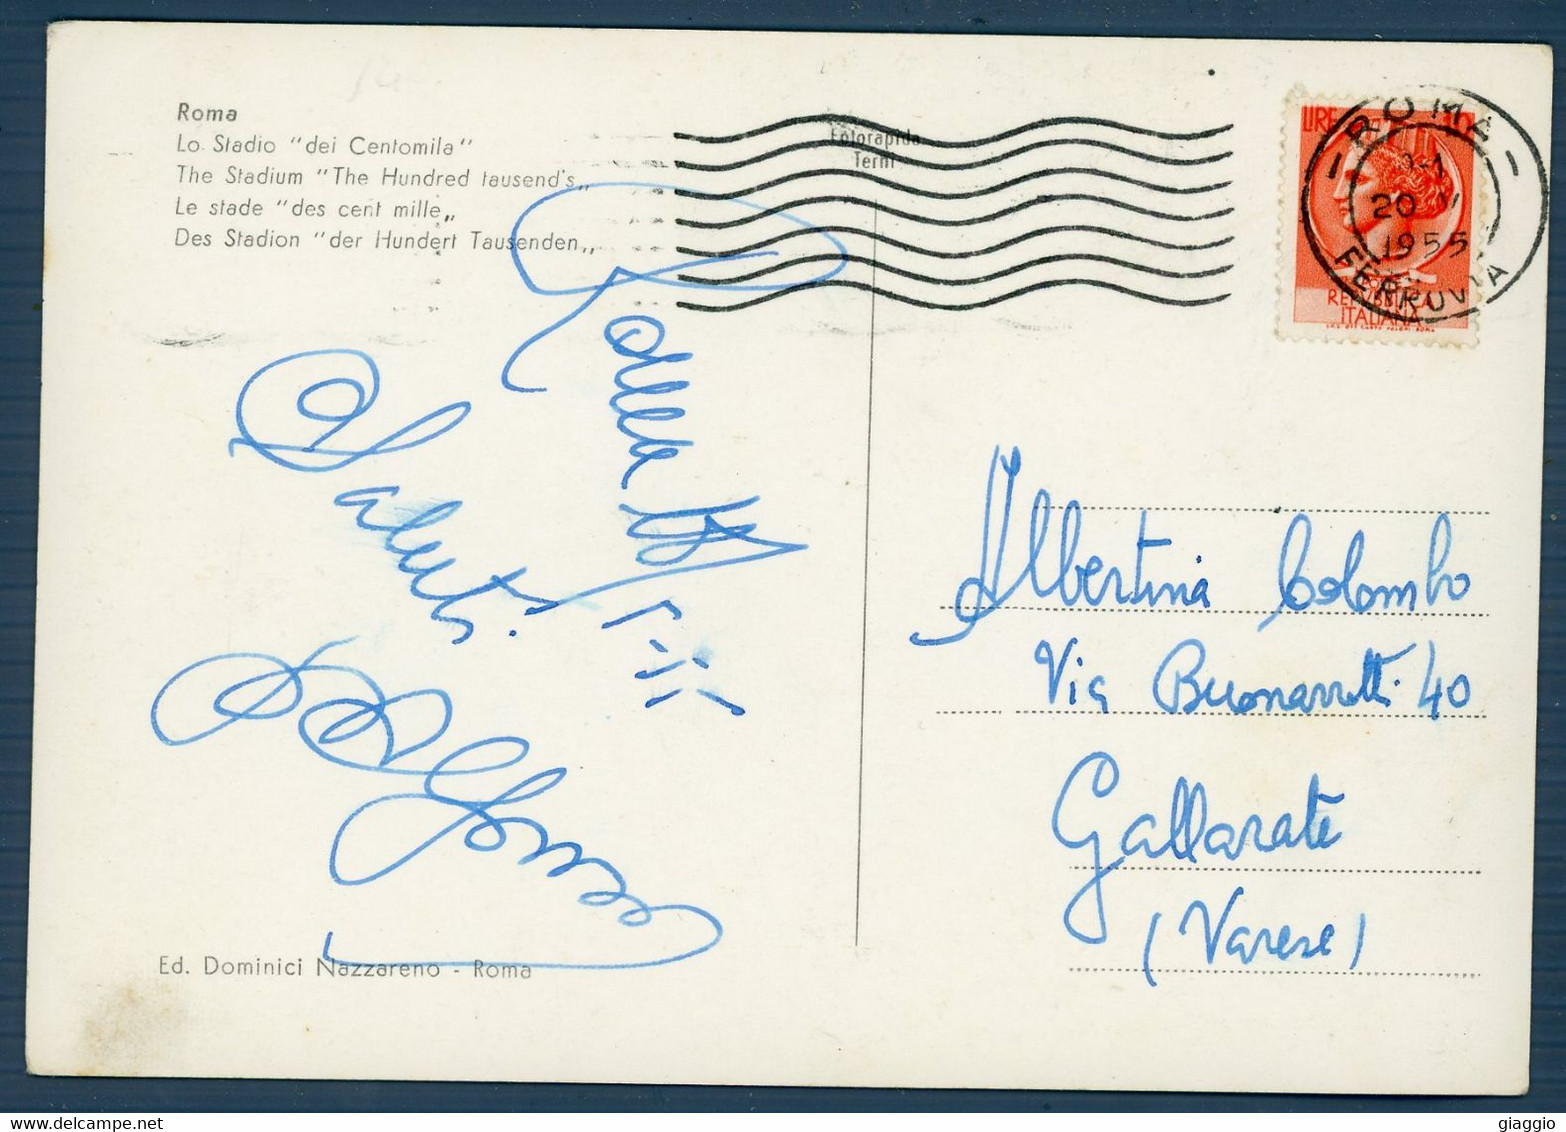 Roma
Lo Stadio "dei Centomila"
The Stadium "The Hundred tausend's„
Le stade "des cent mille„
Des Stadion "der Hundert Tausenden„
Fotorapida
Terni
LIRE 10
REPUBBLICA
ITALIANA
ROMA
20
1955
FERROVIA
Saluti
Albertina Colombo
Via Buonarroti 40
Gallarate
(Varese)
Ed. Dominici Nazzareno - Roma
giaggio